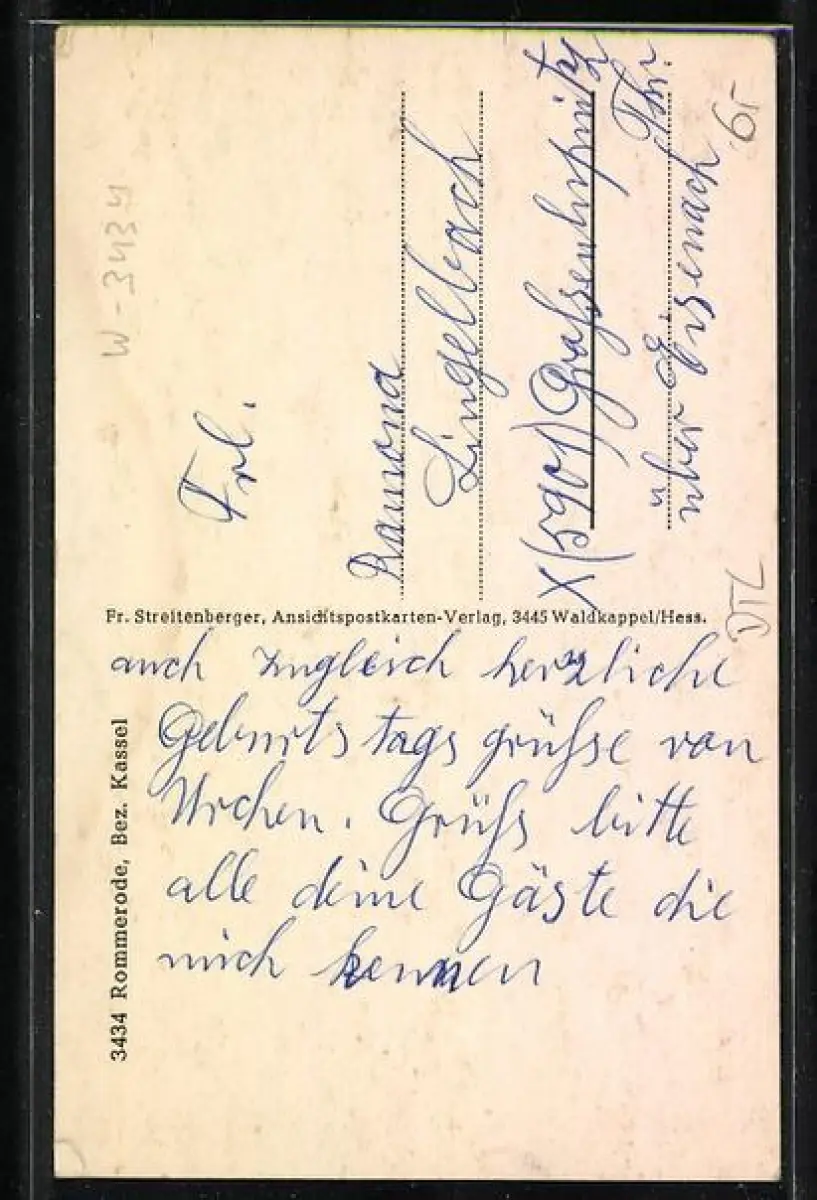 auch zugleich herzliche
Geburtstagsgrüsse von
Urchen. Grüss bitte
alle deine Gäste die
mich kennen
3434 Rommerode, Bez. Kassel
Fr. Streitenberger, Ansichtspostkarten-Verlag, 3445 Waldkappel/Hess.
Frl.
Ramona
Lingelbach
X (5901) Grossenlupnitz
über Eisenach Thür.
W-3434